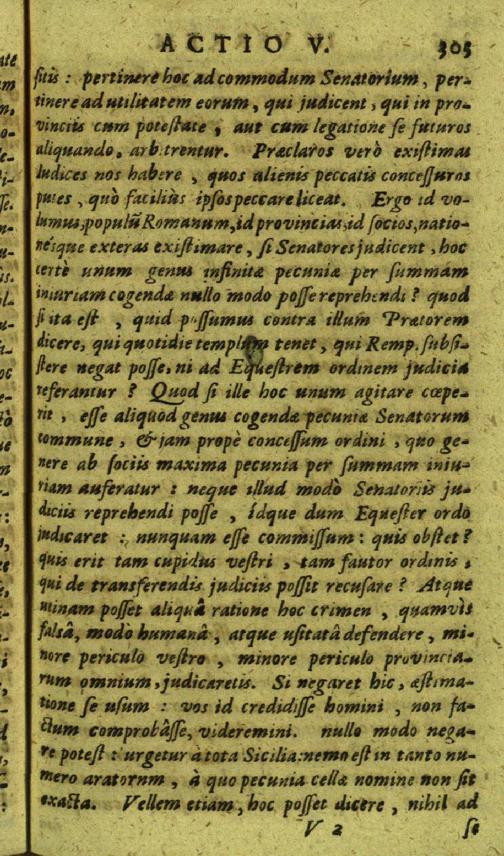 ACTIO V. 305
sitis : pertinere hoc ad commodum Senatorium, per-
tinere ad utilitatem eorum, qui judicent, qui in pro-
vinciis cum potestate, aut cum legatione se futuros
aliquando, arbitrentur. Præclaros verò existimas
Iudices nos habere, quos alienis peccatis concessuros
putes, quò faciliùs ipsos peccare liceat. Ergo id vo-
lumus, populũ Romanum, id provincias, id socios, natio-
nésque exteras existimare, si Senatores judicent, hoc
certè unum genus infinitæ pecuniæ per summam
iniuriam cogendæ nullo modo posse reprehendi? quod
si ita est, quid possumus contra illum Prætorem
dicere, qui quotidie templum tenet, qui Remp. subsi-
stere negat posse, ni ad Equestrem ordinem judicia
referantur? Quod si ille hoc unum agitare cœpe-
rit, esse aliquod genus cogendæ pecuniæ Senatorum
commune, & jam propè concessum ordini, quo ge-
nere ab sociis maxima pecunia per summam iniu-
riam auferatur : neque illud modò Senatoriis ju-
diciis reprehendi posse, idque dum Equester ordo
judicaret :, nunquam esse commissum : quis obstet?
quis erit tam cupidus vestri, tam fautor ordinis,
qui de transferendis judiciis possit recusare? Atque
utinam posset aliquâ ratione hoc crimen, quamvis
falsâ, modo humanâ, atque usitatâ defendere, mi-
nore periculo vestro, minore periculo provincia-
rum omnium, judicaretis. Si negaret hic, æstima-
tione se usum : vos id credidisse homini, non fa-
ctum comprobâsse, videremini. nullo modo nega-
re potest : urgetur à tota Sicilia: nemo est in tanto nu-
mero aratorum, à quo pecunia cellæ nomine non sit
exacta. Vellem etiam, hoc posset dicere, nihil ad
V 2 se